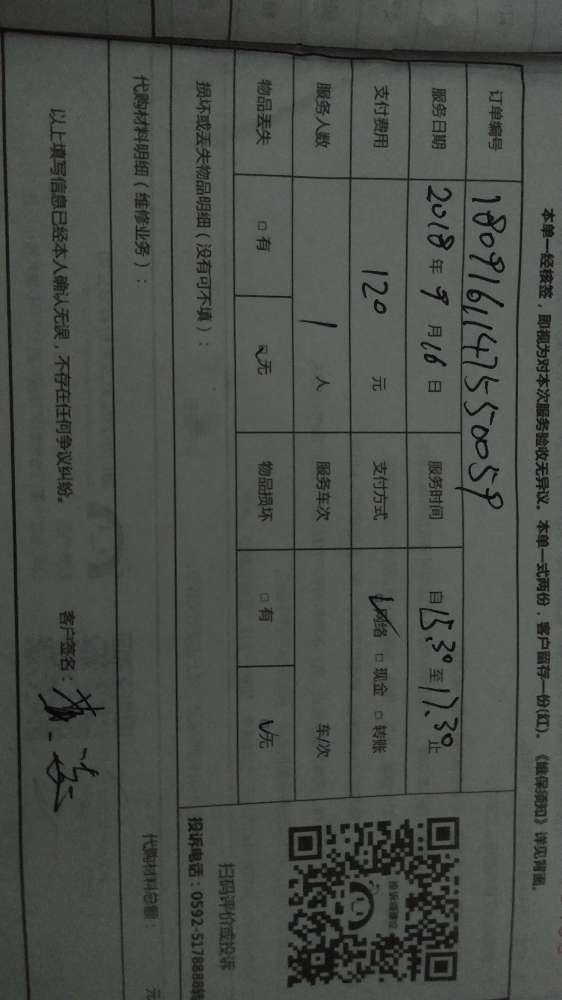 本单一经核签，即视为对本次服务验收无异议。本单一式两份，客户留存一份(红)。《维保须知》详见背面。
订单编号 180916114755 0059
服务日期 2018年9月16日 服务时间 自15.30至17.30止
支付费用 120元 支付方式 ☑网络 □现金 □转账
服务人数 1人 服务车次 车/次
物品丢失 □有 ☑无 物品损坏 □有 ☑无
损坏或丢失物品明细（没有可不填）：
扫码评价或投诉
投诉电话：0592-5178888转
代购材料明细（维修业务）：
代购材料总额： 元
以上填写信息已经本人确认无误，不存在任何争议纠纷。
客户签名：